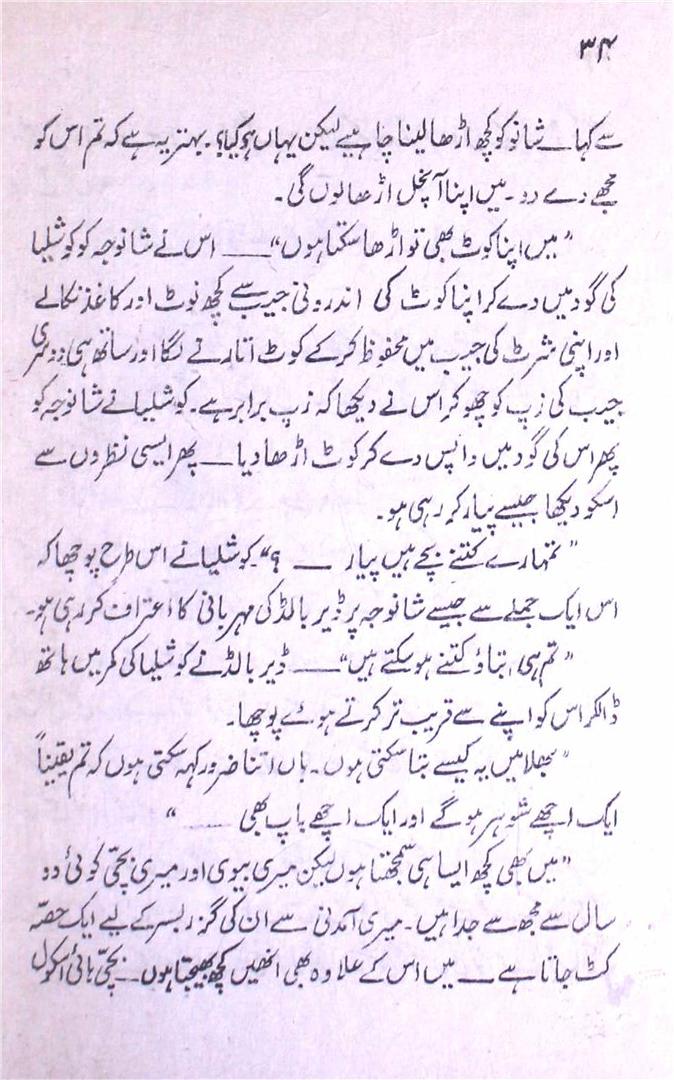 ۳۴
سے کہا ــــ شانو کو کچھ اڑھا لینا چاہیے لیکن یہاں ہو کیا؟۔ بہتر یہ ہے کہ تم اس کو
مجھے دے دو۔ میں اپنا آنچل اڑھا لوں گی۔
”میں اپنا کوٹ بھی تو اڑھا سکتا ہوں“ ــــ اس نے شانوجہ کو کوشلیا
کی گود میں دے کر اپنا کوٹ کی اندرونی جیب سے کچھ نوٹ اور کاغذ نکالے
اور اپنی شرٹ کی جیب میں محفوظ کر کے کوٹ اتارنے لگا اور ساتھ ہی دوسری
جیب کی زپ کو چھو کر اس نے دیکھا کہ زپ برابر ہے۔ کوشلیا نے شانوجہ کو
پھر اس کی گود میں واپس دے کر کوٹ اڑھا دیا ــــ پھر ایسی نظروں سے
اسکو دیکھا جیسے پیار کر رہی ہو۔
”تمہارے کتنے بچے ہیں پیار ــــ ؟“ کوشلیا نے اس طرح پوچھا کہ
اس ایک جملے سے جیسے شانوجہ پر ڈیر بالڈ کی مہربانی کا اعتراف کر رہی ہو۔
”تم ہی بتاؤ کتنے ہو سکتے ہیں“ ــــ ڈیر بالڈ نے کوشلیا کی کمر میں ہاتھ
ڈالکر اس کو اپنے سے قریب تر کرتے ہوئے پوچھا۔
”بھلا میں یہ کیسے بتا سکتی ہوں۔ ہاں اتنا ضرور کہہ سکتی ہوں کہ تم یقیناً
ایک اچھے شوہر ہو گے اور ایک اچھے باپ بھی ــــ “
”میں بھی کچھ ایسا ہی سمجھتا ہوں لیکن میری بیوی اور میری بچّی کوئی دو
سال سے مجھ سے جدا ہیں۔ میری آمدنی سے ان کی گزر بسر کے لیے ایک حصّہ
کٹ جاتا ہے ــــ میں اس کے علاوہ بھی انھیں کچھ بھیجتا ہوں ــــ بچّی ہائی اسکول